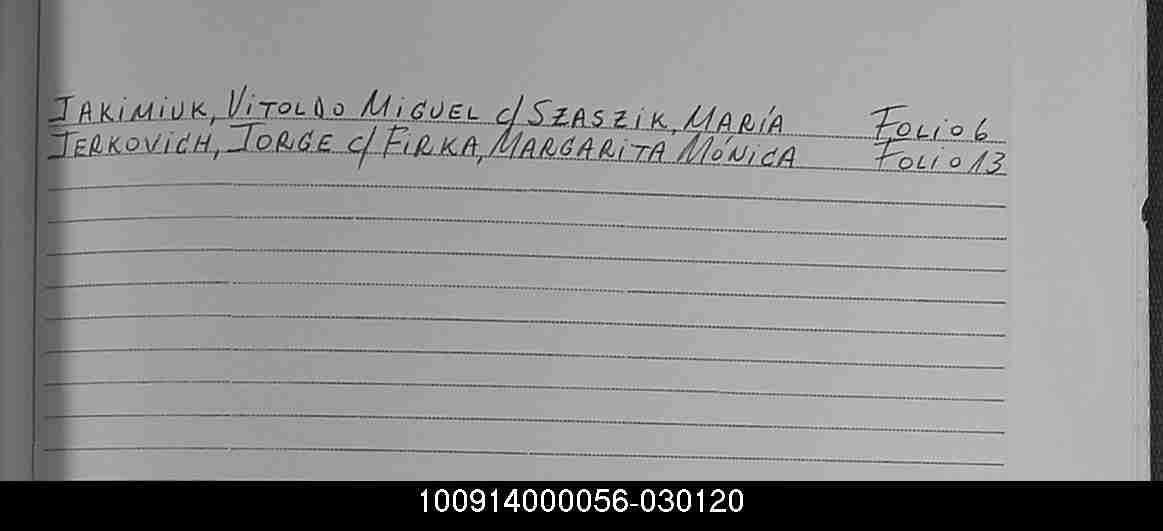 JAKIMIUK, VITOLDO MIGUEL c/ SZASZIK, MARÍA FOLIO 6
JERKOVICH, JORGE c/ FIRKA, MARGARITA MÓNICA FOLIO 13
100914000056-030120